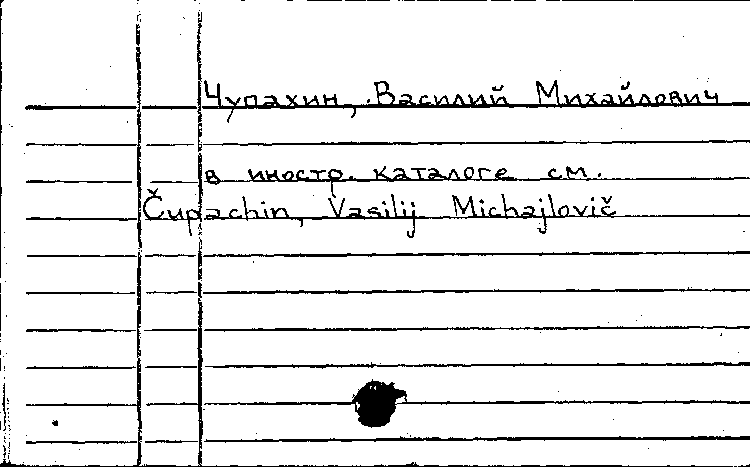 Чупахин, Василий Михайлович
в иностр. каталоге см.
Čupachin, Vasilij Michajlovič